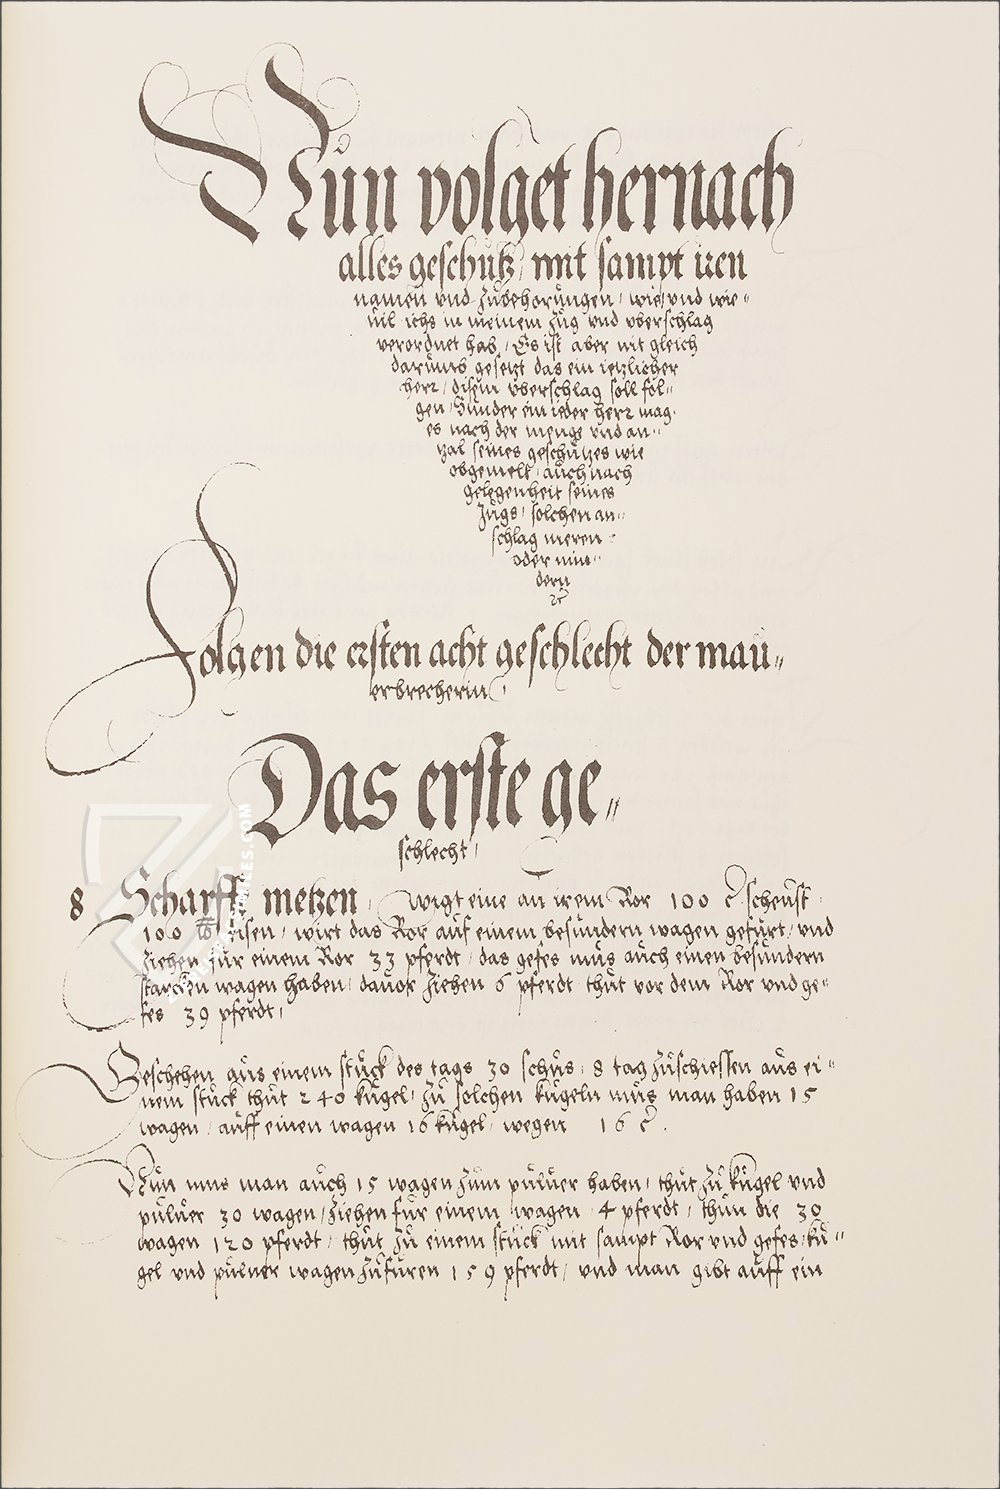 Nun volget hernach
alles geschutz, mit sampt iren
namen vnd zubehorungen, wie vnd wie=
uil ichs in meinem zug vnd vberschlag
verordnet hab, Es ist aber nit gleich
darumb gesetzt das ein ietzlicher
herr, disem vberschlag soll fol=
gen, Sunder ein ieder herr mag
es nach der menge vnd an=
tzal seines geschutzes wie
obgemelt, auch nach
gelegenheit seines
zugs, solchen an=
schlag meren
oder min=
dern
ꝛc
Folgen die ersten acht geschlecht der mau=
erbrecherin,
Das erste ge=
schlecht,
8 Scharff metzen, wigt eine an irem Ror 100 c scheust
100 ℔ eisen, wirt das Ror auf einem besundern wagen gefurt, vnd
ziehen fur einem Ror 33 pferdt, das gefes mus auch einen besundern
starcken wagen haben, dauor ziehen 6 pferdt thut vor dem Ror vnd ge=
fes 39 pferdt,
Geschehen aus einem stuck des tags 30 schus, 8 tag zuschiessen aus ei=
nem stuck thut 240 kugel, zu solchen kugeln mus man haben 15
wagen, auff einen wagen 16 kugel, wegen 16 c.
Nun mus man auch 15 wagen zum puluer haben, thut zu kugel vnd
puluer 30 wagen, ziehen fur einem wagen 4 pferdt, thun die 30
wagen 120 pferdt, thut zu einem stuck mit sampt Ror vnd gefes, ku=
gel vnd puluer wagen zufuren 159 pferdt, vnd man gibt auff ein